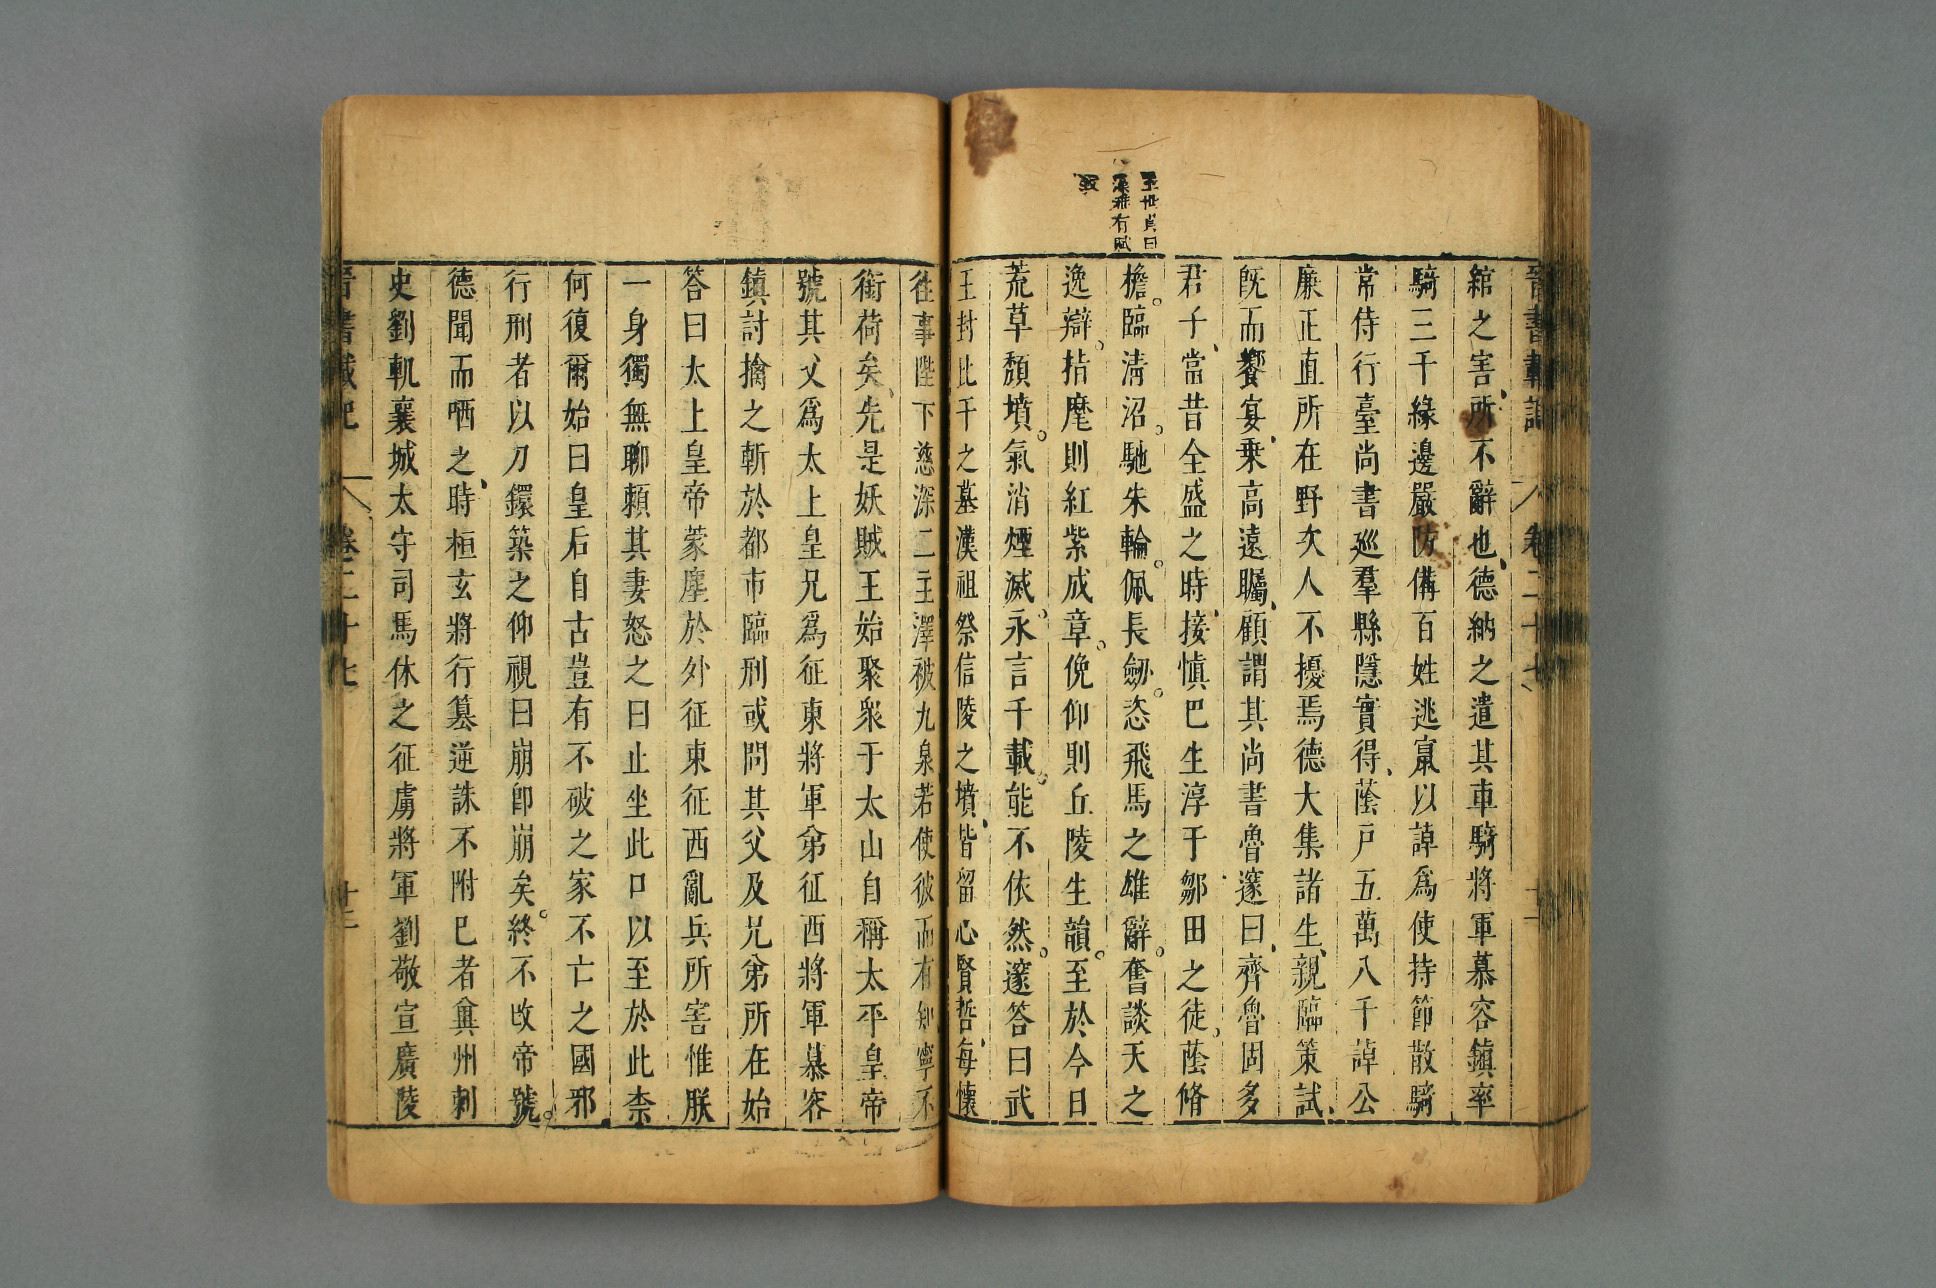 晉書載記 卷二十七
綰之害所不辭也德納之遣其車騎將軍慕容鎮率
騎三千緣邊嚴防備百姓逃竄以𧨳爲使持節散騎
常侍行臺尚書巡羣縣隱實得蔭戶五萬八千𧨳公
廉正直所在野次人不擾焉德大集諸生親臨策試
旣而饗宴乗高遠矚顧謂其尚書魯邃曰齊魯固多
君子當昔全盛之時接慎巴生淳于鄒田之徒蔭脩
檐臨淸沼馳朱輪佩長劒恣飛馬之雄辭奮談天之
逸辯指麾則紅紫成章俛仰則丘陵生韻至於今日
荒草頹墳氣消煙滅永言千載能不依然邃答曰武
王封比干之墓漢祖祭信陵之墳皆留心賢哲每懷
王世貞曰
溪雅有賦
致
往事陛下慈深二主澤被九泉若使彼而有知寧不
銜荷矣先是妖賊王始聚衆于太山自稱太平皇帝
號其父爲太上皇兄爲征東將軍弟征西將軍慕容
鎮討擒之斬於都市臨刑或問其父及兄弟所在始
答曰太上皇帝蒙塵於外征東征西亂兵所害惟朕
一身獨無聊賴其妻怒之曰止坐此口以至於此柰
何復爾始曰皇后自古豈有不破之家不亡之國邪
行刑者以刀鐶築之仰視曰崩卽崩矣終不改帝號
德聞而哂之時桓玄將行篡逆誅不附巳者兾州刺
史劉軌襄城太守司馬休之征虜將軍劉敬宣廣陵
晉書載記 卷二十七 十二